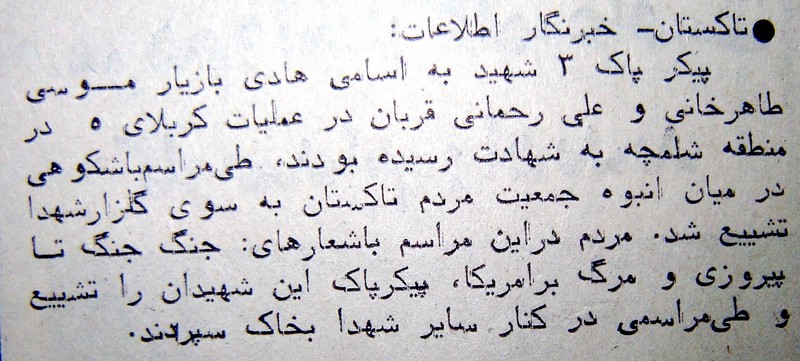 ● تاکستان- خبرنگار اطلاعات:
پیکر پاک ۳ شهید به اسامی هادی بازیار مــوسی
طاهرخانی و علی رحمانی قربان در عملیات کربلای ۵ در
منطقه شلمچه به شهادت رسیده بودند، طی‌مراسم‌باشکوهی
در میان انبوه جمعیت مردم تاکستان به سوی گلزارشهدا
تشییع شد. مردم دراین مراسم باشعارهای: جنگ جنگ تــا
پیروزی و مرگ برامریکا، پیکرپاک این شهیدان را تشییع
و طی‌مراسمی در کنار سایر شهدا بخاک سپردند.